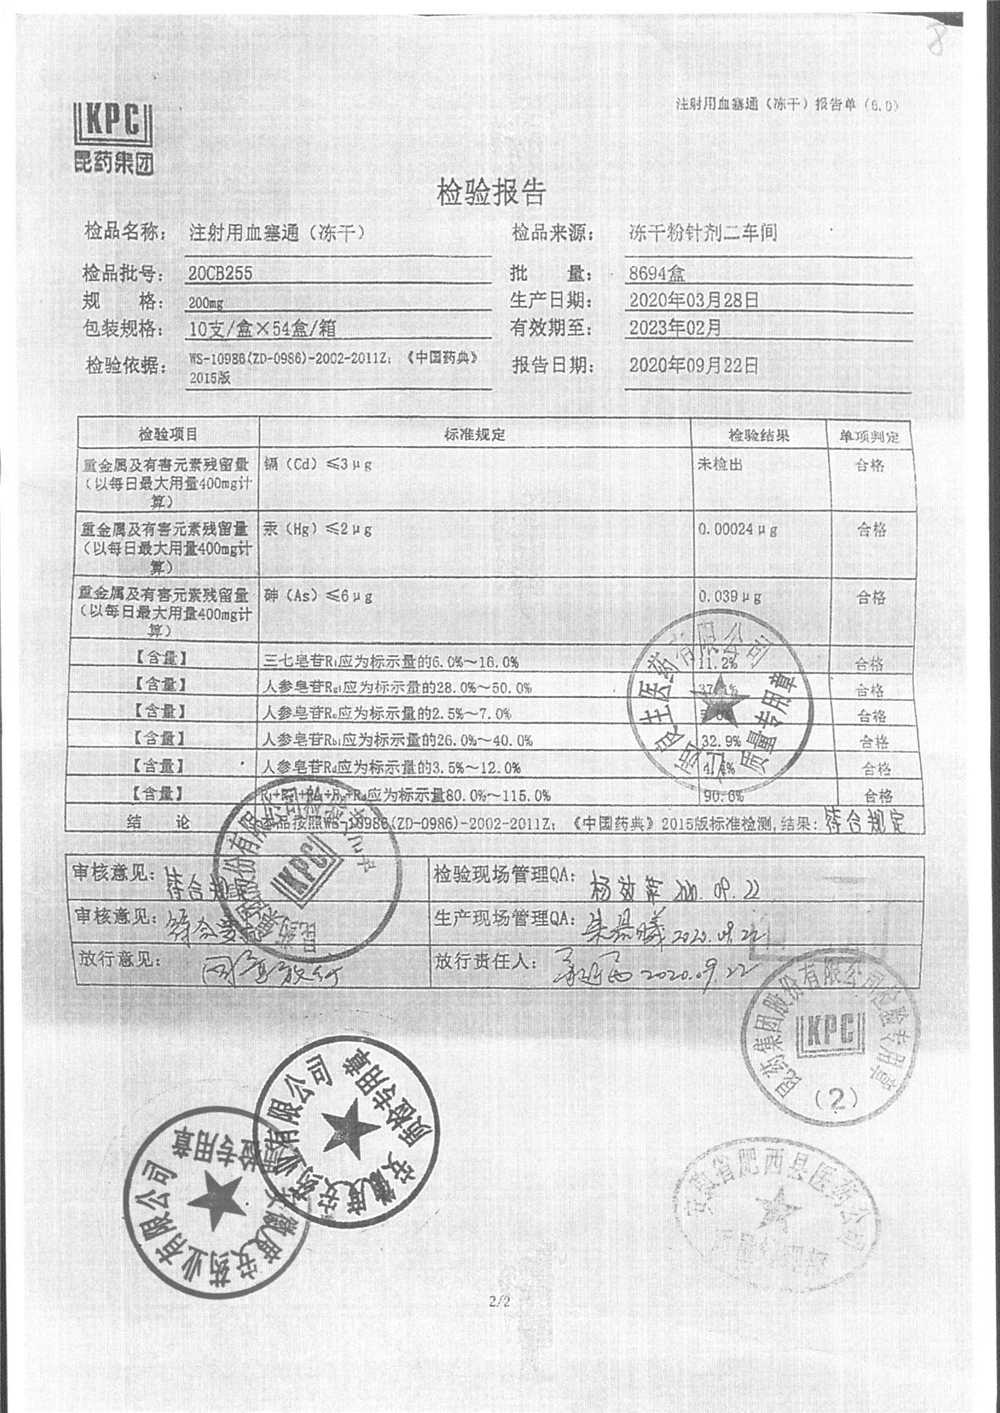 8
注射用血塞通（冻干）报告单（6.0）
KPC
昆药集团
检验报告
检品名称： 注射用血塞通（冻干） 检品来源： 冻干粉针剂二车间
检品批号： 20CB255 批 量： 8694盒
规 格： 200mg 生产日期： 2020年03月28日
包装规格： 10支/盒×54盒/箱 有效期至： 2023年02月
检验依据： WS-10986(ZD-0986)-2002-2011Z；《中国药典》2015版 报告日期： 2020年09月22日
检验项目 标准规定 检验结果 单项判定
重金属及有害元素残留量（以每日最大用量400mg计算） 镉（Cd）≤3μg 未检出 合格
重金属及有害元素残留量（以每日最大用量400mg计算） 汞（Hg）≤2μg 0.00024μg 合格
重金属及有害元素残留量（以每日最大用量400mg计算） 砷（As）≤6μg 0.039μg 合格
【含量】 三七皂苷R1应为标示量的6.0%～16.0% 11.2% 合格
【含量】 人参皂苷Rg1应为标示量的28.0%～50.0% 合格
【含量】 人参皂苷Re应为标示量的2.5%～7.0% 合格
【含量】 人参皂苷Rb1应为标示量的26.0%～40.0% 32.9% 合格
【含量】 人参皂苷Rd应为标示量的3.5%～12.0% 合格
【含量】 应为标示量80.0%～115.0% 90.6% 合格
结 论 品按照WS-10986(ZD-0986)-2002-2011Z；《中国药典》2015版标准检测,结果：符合规定
审核意见： 符合规定 检验现场管理QA： 2020.09.22
审核意见： 符合 生产现场管理QA： 2020.09.22
放行意见： 同意放行 放行责任人： 2020.09.22
医药有限公司
质量专用章
KPC
昆药集团股份有限公司检验专用章
KPC
（2）
安徽广安药业有限公司
质检专用章
安徽广安药业有限公司
质检专用章
安徽省肥西县医药公司
2/2